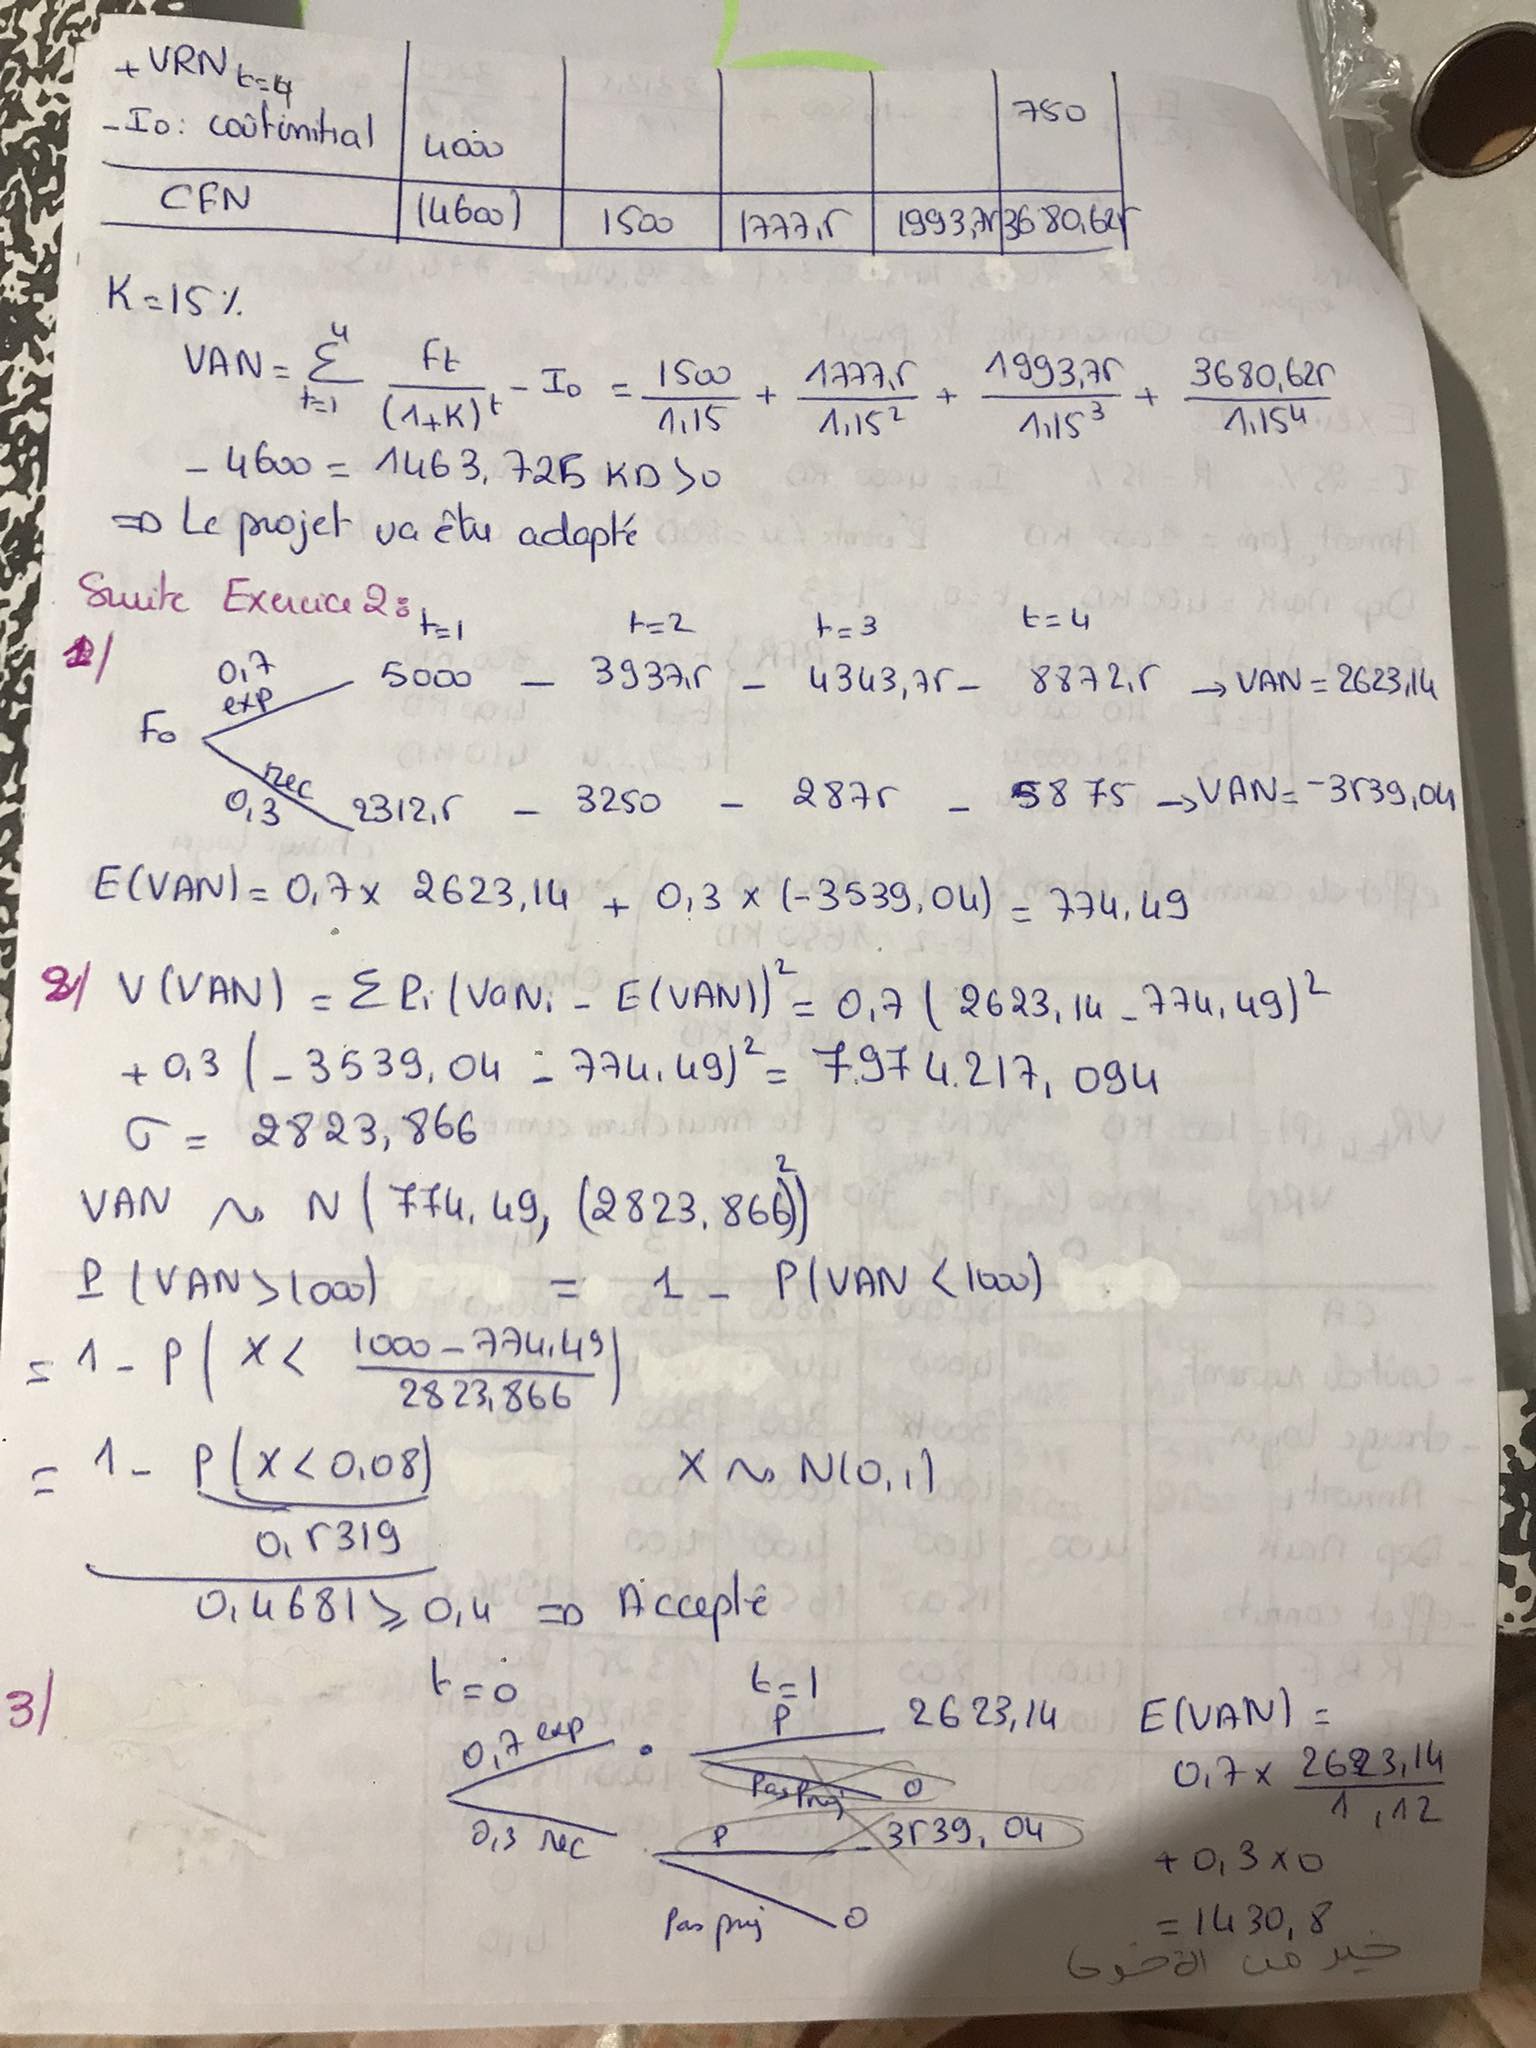 + VRN t=4
750
- I0 : coût initial 4000
CFN (4600) 1500 1777,5 1993,75 3680,625
K = 15 %
VAN = Σ_{t=1}^{4} Ft/(1+K)^t - I0 = 1500/1,15 + 1777,5/1,15² + 1993,75/1,15³ + 3680,625/1,15⁴
- 4600 = 1463,725 KD > 0
=> Le projet va être adapté
Suite Exercice 2 :
t=1 t=2 t=3 t=4
1/ 0,7 exp 5000 - 3937,5 - 4343,75 - 8872,5 → VAN = 2623,14
F0
rec 0,3 2312,5 - 3250 - 2875 - 5875 → VAN = -3539,04
E(VAN) = 0,7 x 2623,14 + 0,3 x (-3539,04) = 774,49
2/ V(VAN) = Σ Pi (VaNi - E(VAN))² = 0,7 (2623,14 - 774,49)²
+ 0,3 (-3539,04 - 774,49)² = 7.974.217,094
σ = 2823,866
VAN ~ N(774,49, (2823,866)²)
P(VAN > 1000) = 1 - P(VAN < 1000)
= 1 - P(X < (1000 - 774,49)/2823,866)
= 1 - P(X < 0,08) X ~ N(0,1)
0,5319
0,4681 ≥ 0,4 => Accepté
3/ t=0 t=1
0,7 exp P 2623,14 E(VAN) =
Pas Proj 0 0,7 x 2623,14/1,12
0,3 rec P -3539,04
+ 0,3 x 0
Pas proj 0
= 1430,8
خير من الأخرى